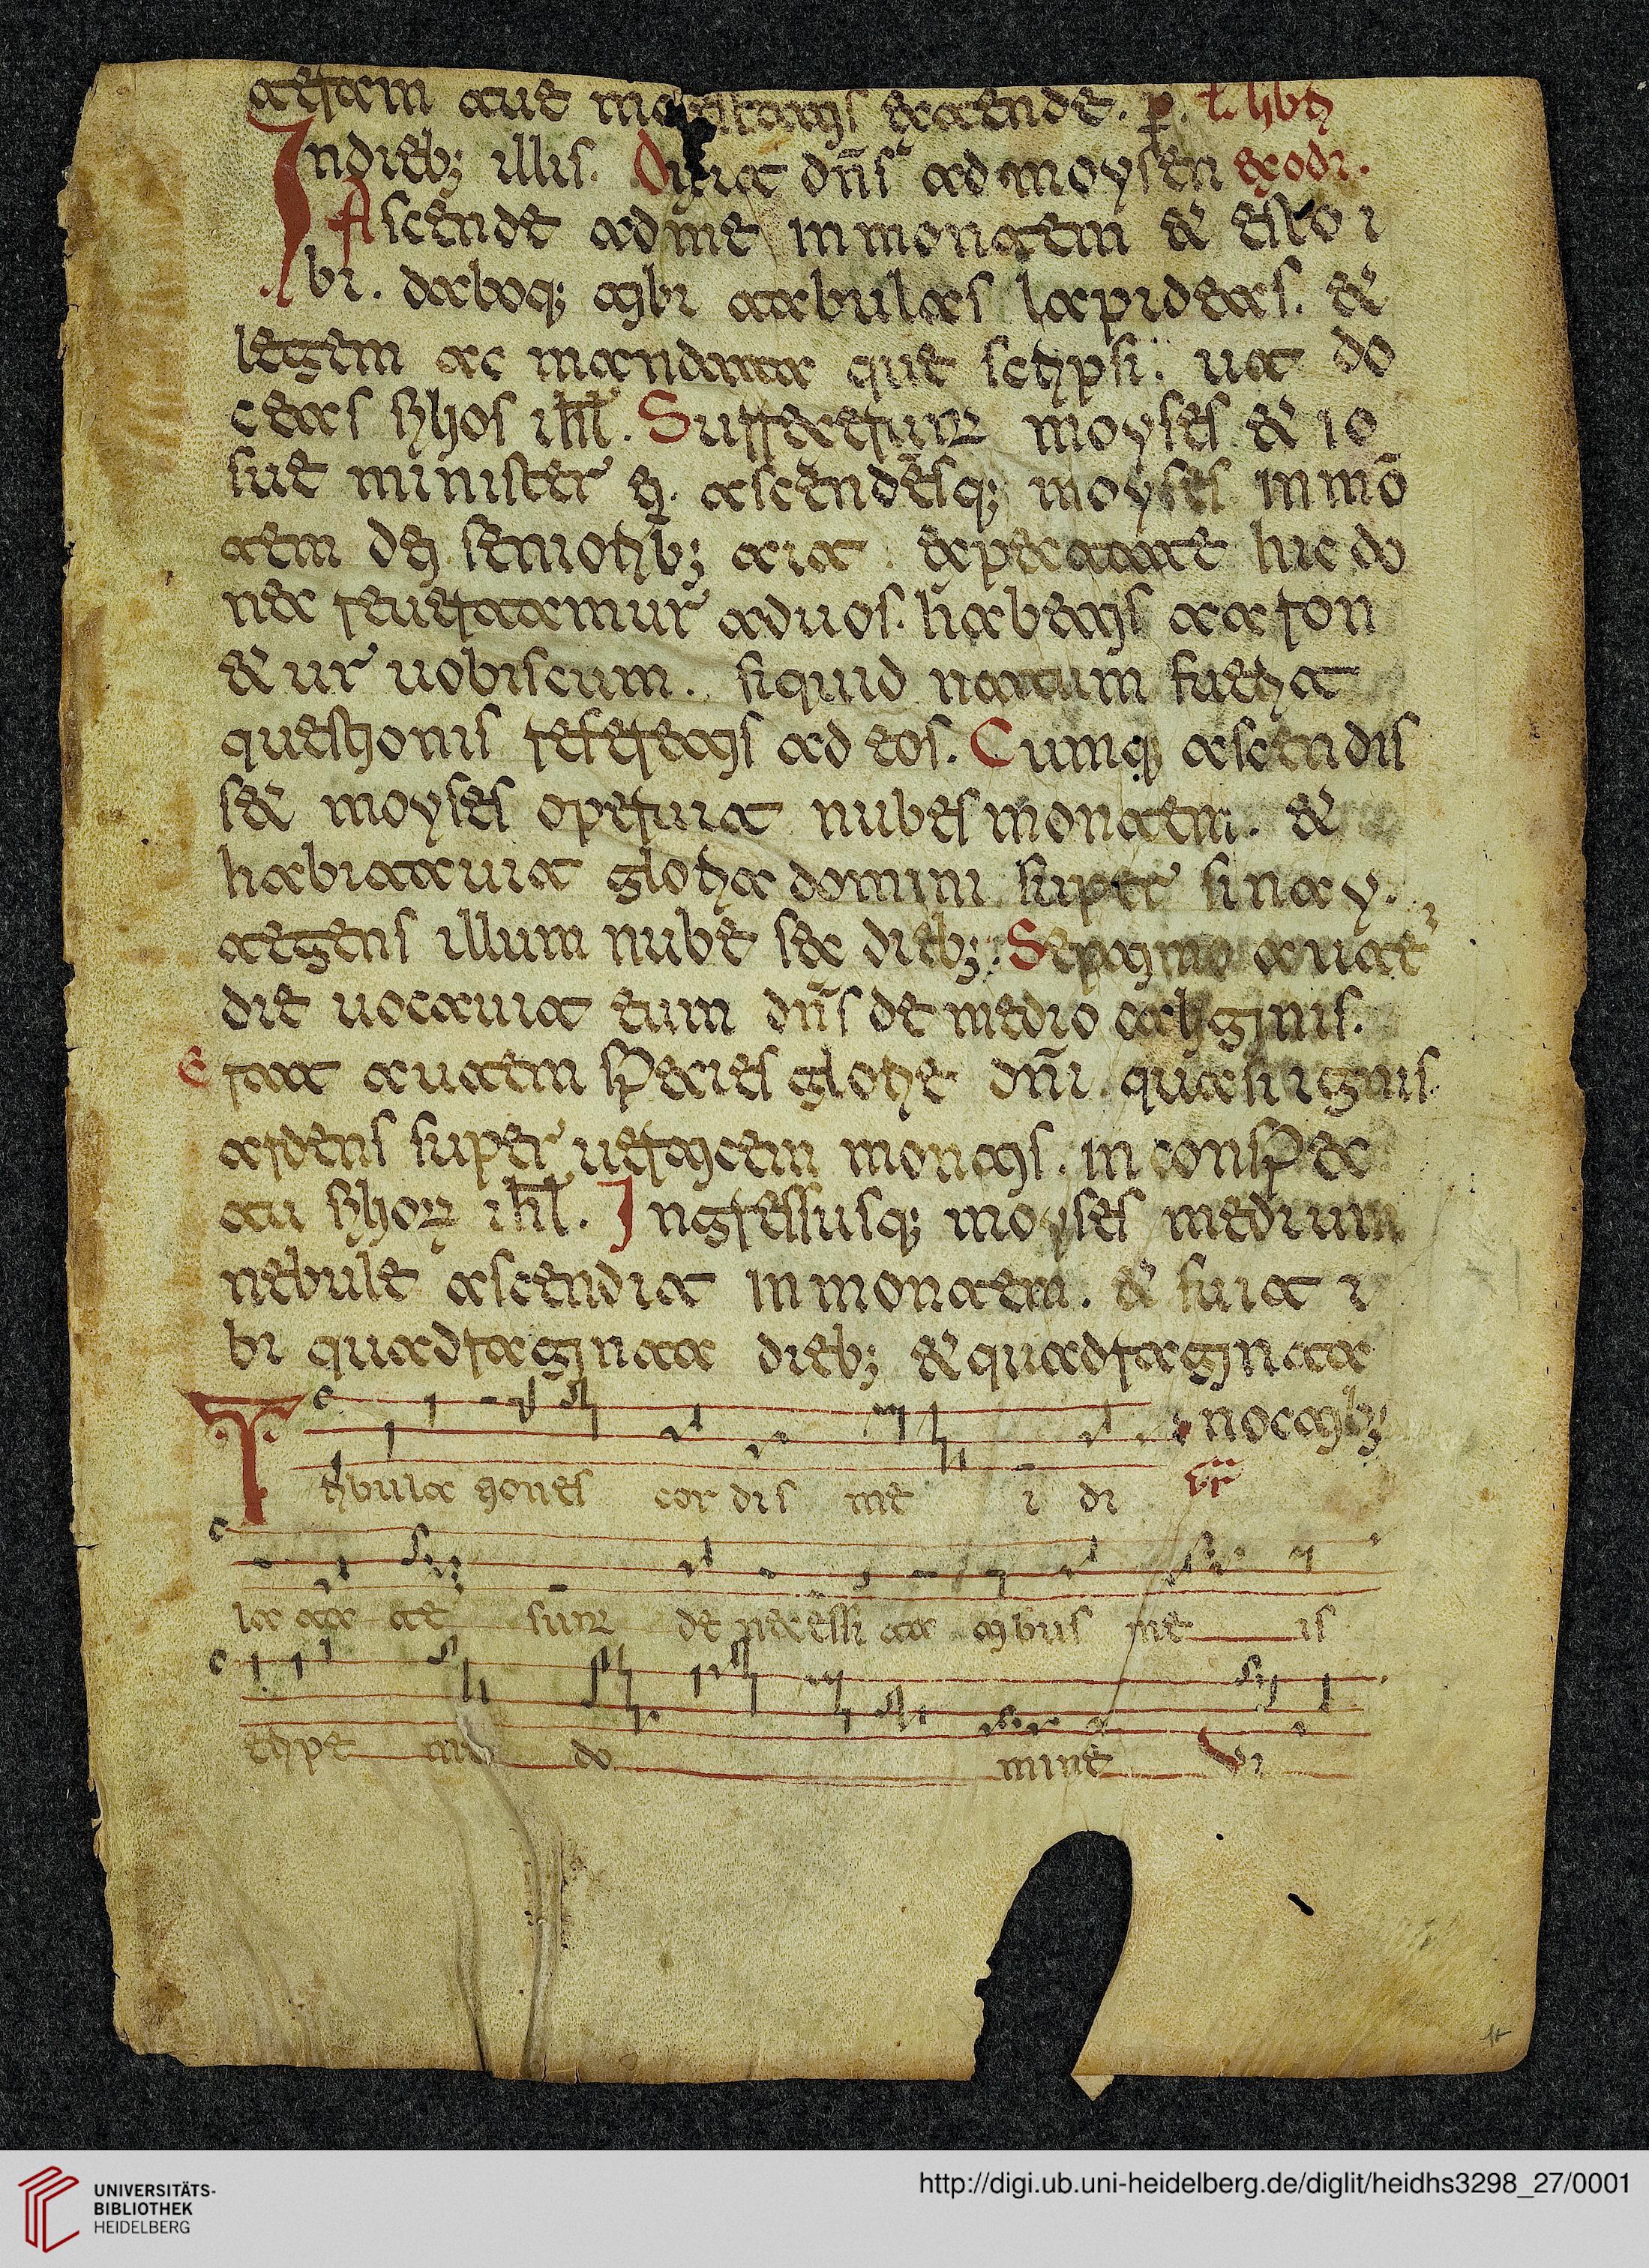 teram tue maiestatis extende. p. L. lib̄ri
Indieb; illis. Dixit dn̄s ad moysen exodi.
Ascende ad me in montem & esto i
bi. daboq; tibi tabulas lapideas. &
legem ac mandata que scripsi. ut do
ceas filios iħl. Surrexerunt moyses & io
sue minister ei. ascendēsq; moyses in mō
tem dei seniorib; ait. expectate hic do
nec reuertamur ad uos. habetis aaron
& ur uobiscum. siquid natum fuerit
questionis referetis ad eos. Cumq; ascendis
s& moyses operuit nubes montem. &
habitauit gloria domini super sinay.
tegens illum nube sex dieb;. Septimo autē
die uocauit eum dn̄s de medio caliginis.
Erat autem species glorie dn̄i quasi ignis
ardens super uerticem montis. in conspec
tu filiorꝝ iħl. Ingressusq; moyses medium
nebule ascendit in montem. & fuit i
bi quadraginta dieb; & quadraginta
noctib;
Tribula tiones cor dis me i di
GR̄
la ta te sunt de necessi ta tibus me is
eripe me do mine Vi
UNIVERSITÄTS-
BIBLIOTHEK
HEIDELBERG
http://digi.ub.uni-heidelberg.de/diglit/heidhs3298_27/0001